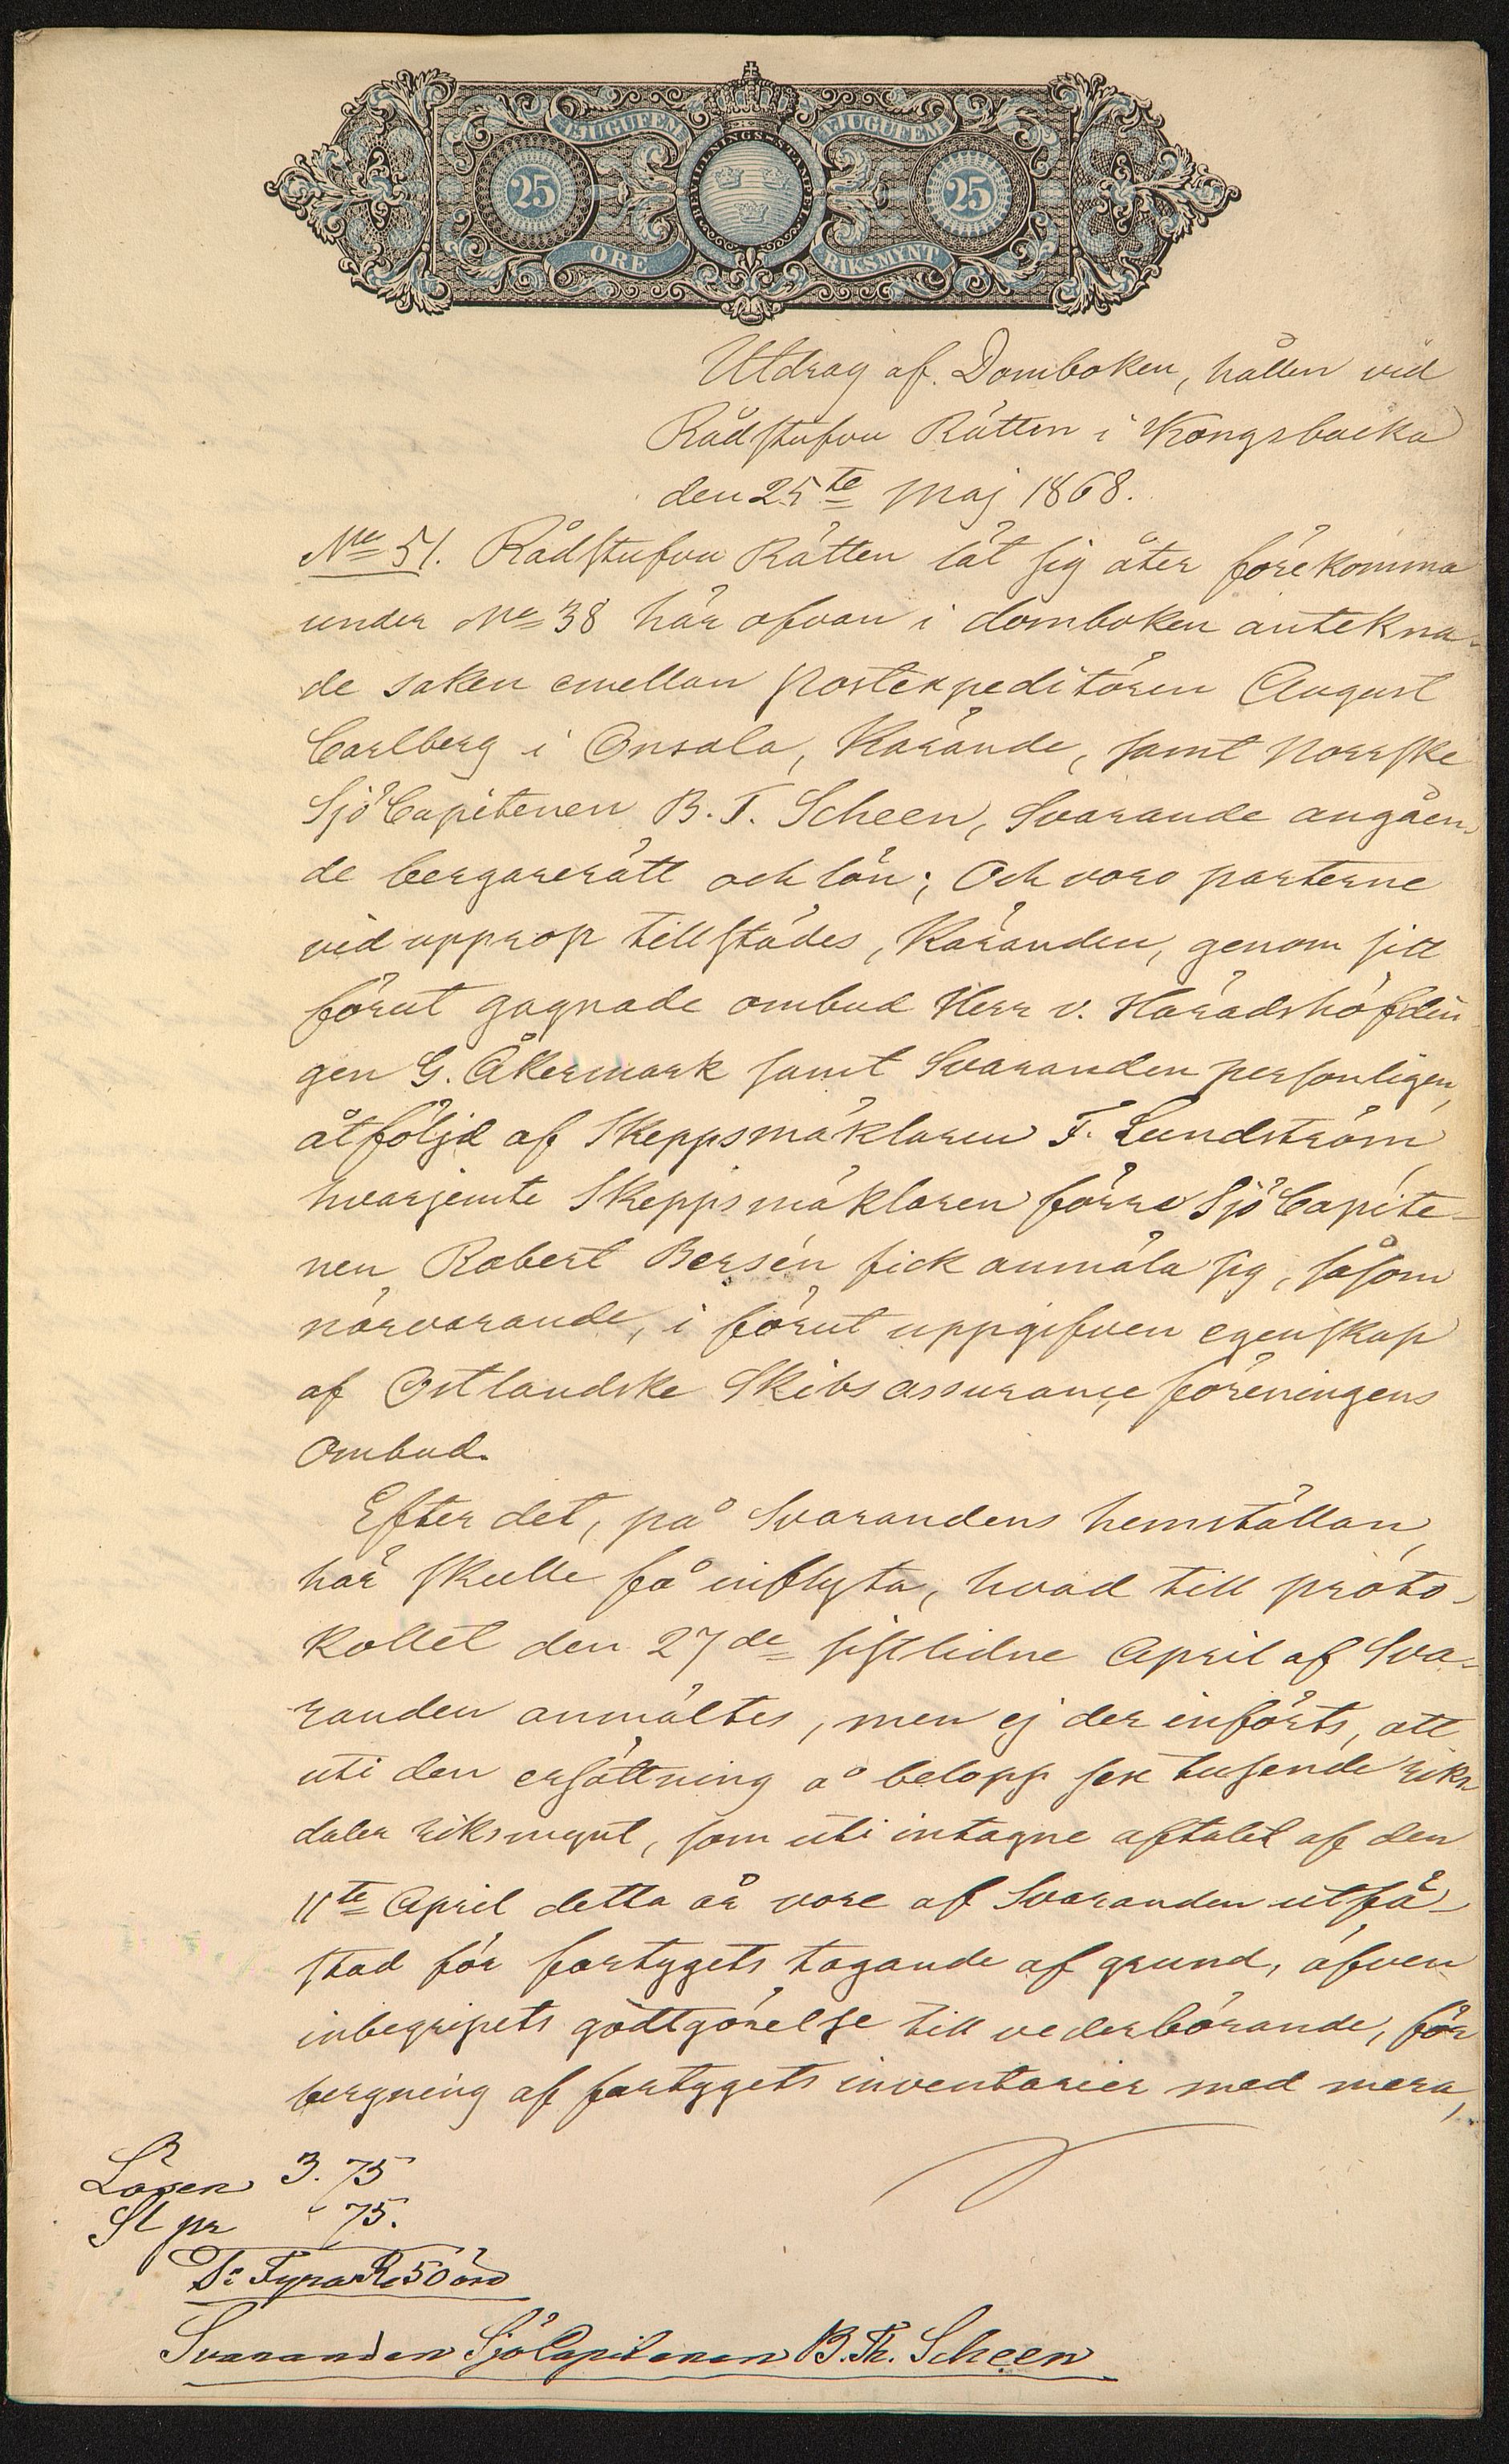 TJUGUFEM TJUGUFEM
BEVILLNINGS-STAMPEL
25 25
ÖRE RIKSMYNT
Utdrag af Domboken, hållen vid
Rådstufvu Rätten i Kongsbacka
den 25te Maj 1868.
No 51. Rådstufvu Rätten lät sig åter förekomma
under No 38 här ofvan i domboken antekna-
de saken emellan Postexpeditören August
Carlberg i Onsala, Kärande, samt Norrske
SjöCapitenen B. T. Scheen, Svarande angåen-
de bergarerätt och lön; Och voro parterne
vid upprop tillstädes, Käranden, genom sitt
förut gagnade ombud Herr v. Häradshöfdin
gen G. Åkermark samt Svaranden personligen,
åtföljd af Skeppsmäklaren F. Lundström,
hvarjemte Skeppsmäklaren förre SjöCapite-
nen Robert Bersén fick anmäla sig, såsom
närvarande, i förut uppgifven egenskap
af Ostlandske Skibsassurance föreningens
Ombud.
Efter det, på Svarandens hemställan,
här skulle få inflyta, hvad till proto-
kollet den 27de sistlidne April af Sva-
randen anmältes, men ej der införts, att
uti den ersättning å belopp sex tusende riks
daler riksmynt, som uti intagne aftalet af den
11te April detta år vore af Svaranden utfä-
stad för fartygets tagande af grund, äfven
inbegripets godtgörelse till vederbörande, för
bergning af fartygets inventarier med mera,
Lösen 3. 75
St pr " 75.
Sa Fyra Rd 50 öre
Svaranden SjöCapitenen B. Th. Scheen